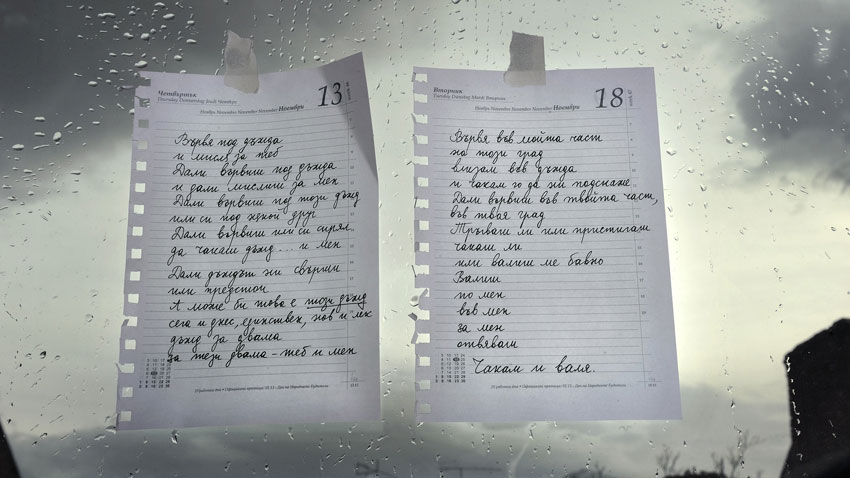 Четвъртък
Thursday Donnerstag Jeudi Четверг
Ноябрь Novembre November November Ноември
13
Вървя под дъжда
и мисля за теб
Дали вървиш под дъжда
и дали мислиш за мен
Дали вървиш под този дъжд
или си под някой друг
Дали вървиш или си спрял..
да чакаш дъжд... и мен
Дали дъждът ни свърши
или предстои
А може би това е този дъжд
сега и днес, единствен, нов и лек
дъжд за двама
за тези двама - теб и мен
Вторник
Tuesday Dienstag Mardi Вторник
Ноябрь Novembre November November Ноември
18
Вървя във мойта част
на този град
влизам във дъжда
и чакам го да ни подскаже
Дали вървиш във твойта част,
във твоя град
Тръгваш ли или пристигаш
чакаш ли
или валиш ме бавно
Валиш
по мен
във мен
за мен
отвяваш
Чакам и валя.